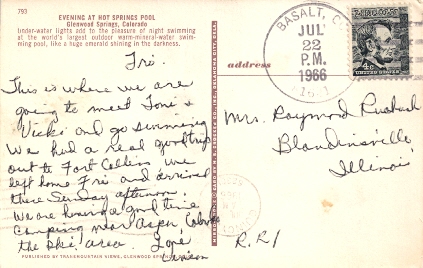 793
EVENING AT HOT SPRINGS POOL
Glenwood Springs, Colorado
Under-water lights add to the pleasure of night swimming
at the world's largest outdoor warm-mineral-water swim-
ming pool, like a huge emerald shining in the darkness.
Fri.
This is where we are
going to meet Toni &
Vicki and go swimming
We had a real good trip
out to Fort Collins we
left home Fri and arrived
there Sunday afternoon.
We are having a good time
camping near Aspen, Colorado
the ski area. Love
PUBLISHED BY TRANSMOUNTAIN VIEWS, GLENWOOD SPRINGS
address
BASALT, C
JUL
22
P.M.
1966
4c
UNITED STATES
Mrs. Raymond
Blandinsville,
Illinois
R.R 1